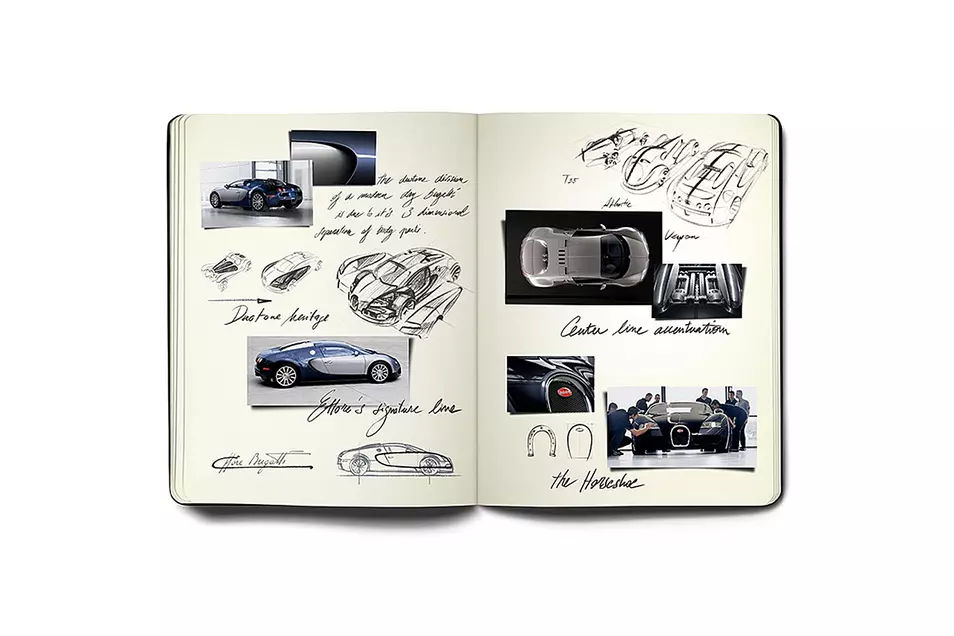 the duotone division
of a modern day Bugatti
is due to it's 3 dimensional
separation of body parts.
Duotone heritage
Ettore's signature line
Ettore Bugatti
T35
Atlantic
Veyron
Centre line accentuation
the Horseshoe